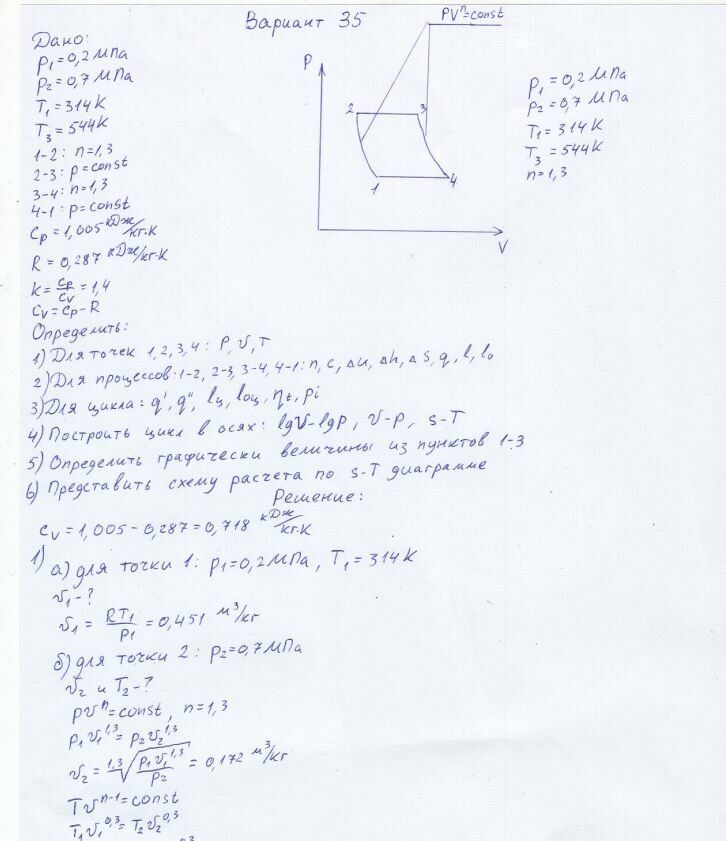 Вариант 35
PVⁿ=const
Дано:
p₁=0,2 МПа
p₂=0,7 МПа
T₁=314К
T₃=544К
1-2: n=1,3
2-3: p=const
3-4: n=1,3
4-1: p=const
Cp=1,005 кДж/кг·К
R=0,287 кДж/кг·К
k=cp/cv=1,4
Cv=Cp-R
P
2
3
1
4
V
p₁=0,2 МПа
p₂=0,7 МПа
T₁=314К
T₃=544К
n=1,3
Определить:
1) Для точек 1,2,3,4: P, v, T
2) Для процессов: 1-2, 2-3, 3-4, 4-1: n, c, Δu, Δh, Δs, q, l, l₀
3) Для цикла: q', q", lц, l₀ц, ηt, pi
4) Построить цикл в осях: lgV-lgP, v-P, s-T
5) Определить графически величины из пунктов 1-3
6) Представить схему расчета по s-T диаграмме
Решение:
cv=1,005-0,287=0,718 кДж/кг·К
1) а) для точки 1: p₁=0,2 МПа, T₁=314К
v₁-?
v₁=RT₁/p₁=0,451 м³/кг
б) для точки 2: p₂=0,7 МПа
v₂ и T₂-?
pvⁿ=const, n=1,3
p₁v₁^1,3=p₂v₂^1,3
v₂=^1,3√(p₁v₁^1,3/p₂)=0,172 м³/кг
Tvⁿ⁻¹=const
T₁v₁^0,3=T₂v₂^0,3